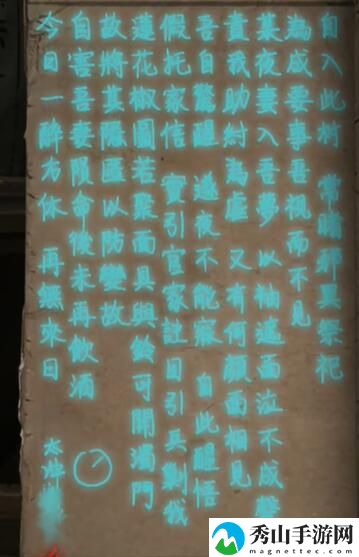 自入此村 常睹邪異祭祀
為成要事吾視而不見
某夜妻入吾夢以袖遮面泣不成聲
責我助紂為虐 又有何顏面相見
吾自驚醒 遂夜不能寐 自此醒悟
假托家信 實引官家註目引兵剿我
蓮花椒圖若聚而具與鈴可開濁門
故將其隱匿以防變故
自害吾妻隕命後未再飲酒
今日一醉方休 再無來日
秀山手游网
magnettec.com